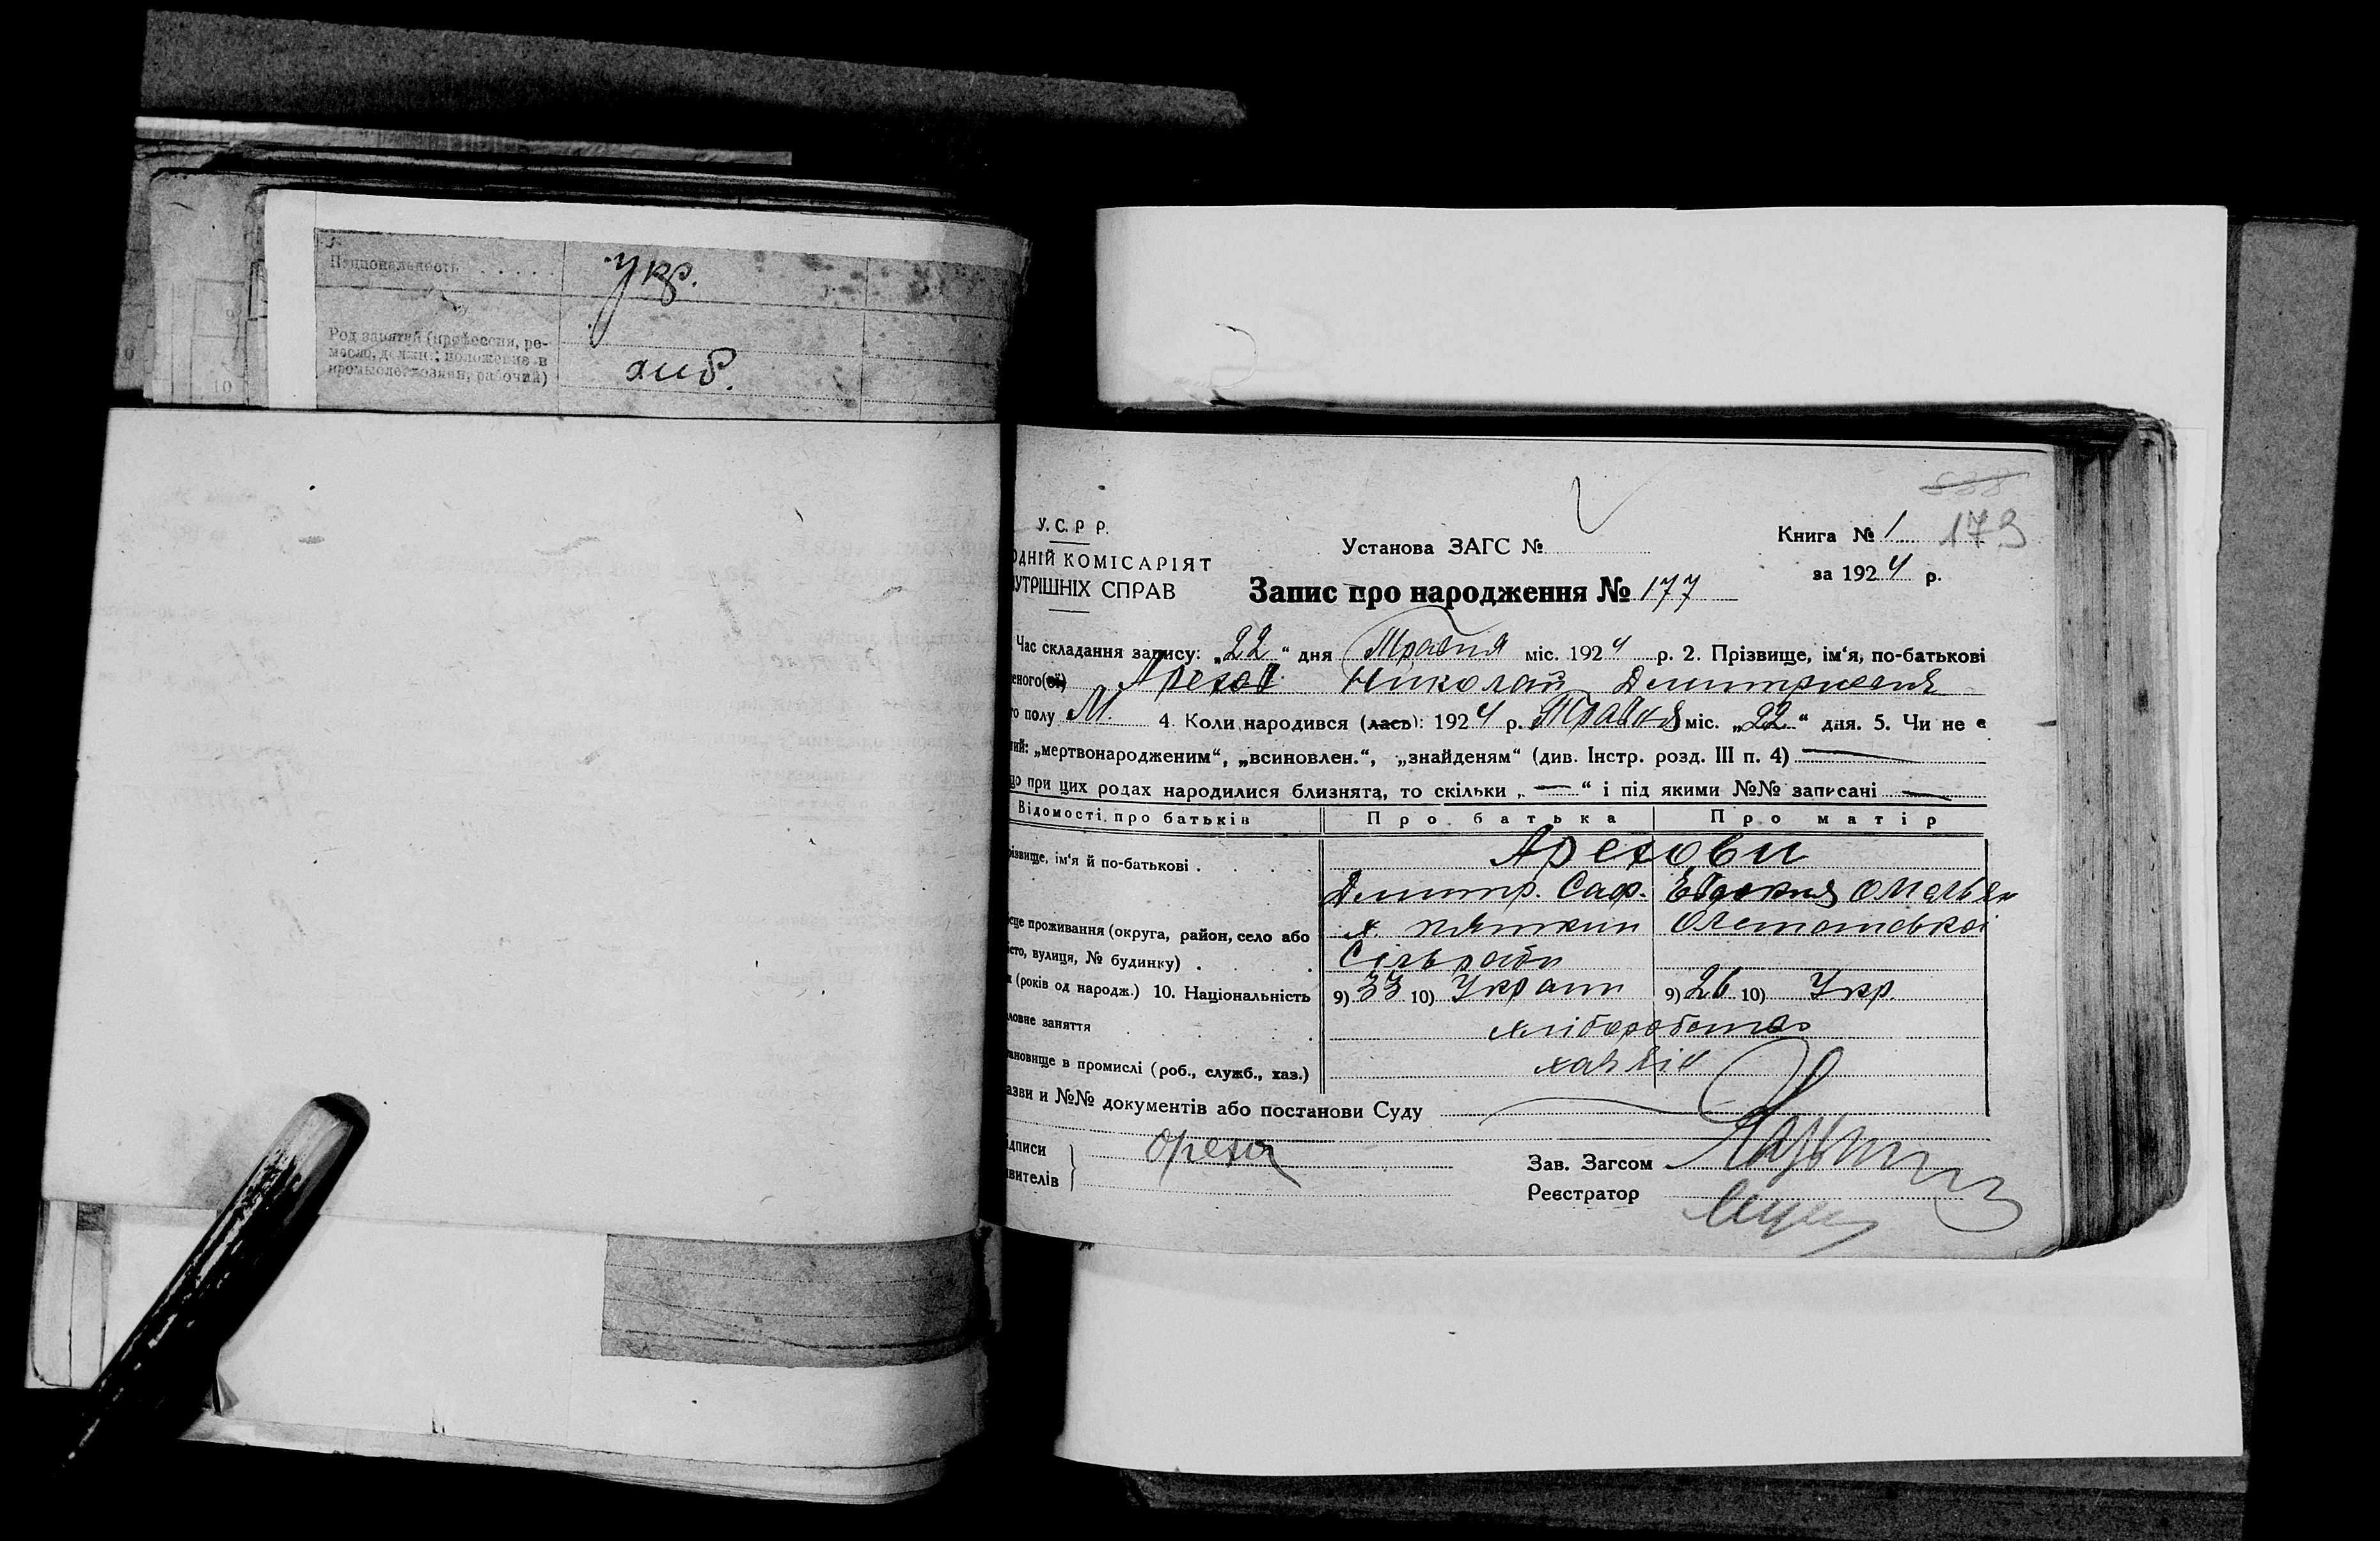 Национальность
укр.
Род занятий (профессия, ре-
месло, должн.; положение в
промысле: хозяин, рабочий)
хлеб.
538
У.С.Р Р.
ОДНІЙ КОМІСАРІЯТ
УТРІШНІХ СПРАВ
Установа ЗАГС №
Книга № 1 179
за 1924 р.
Запис про народження № 177
Час складання запису: „22“ дня Травня міс. 1924 р. 2. Прізвище, ім‘я, по-батькові
еного(ої) Арехов Николай Дмитриевич
го полу М. 4. Коли народився (лась): 1924 р. Травня міс. „22“ дня. 5. Чи не є
ний: „мертвонародженим“, „всиновлен.“, „знайденям“ (див. Інстр. розд. III п. 4) —
що при цих родах народилися близнята, то скільки „—“ і під якими №№ записані —
Відомості про батьків Про батька Про матір
різвище, ім‘я й по-батькові . Арехови
Дмитр. Саф. Евдокия Омельян
сце проживання (округа, район, село або х. Олетамської
сто, вулиця, № будинку) . Сільради
(років од народж.) 10. Національність 9) 33 10) Украин 9) 26 10) Укр.
ловне заняття хлібороботво
тановище в промислі (роб., служб., хаз.) хазяів
азви и №№ документів або постанови Суду
дписи
явителів
Орехов
Зав. Загсом
Реєстратор